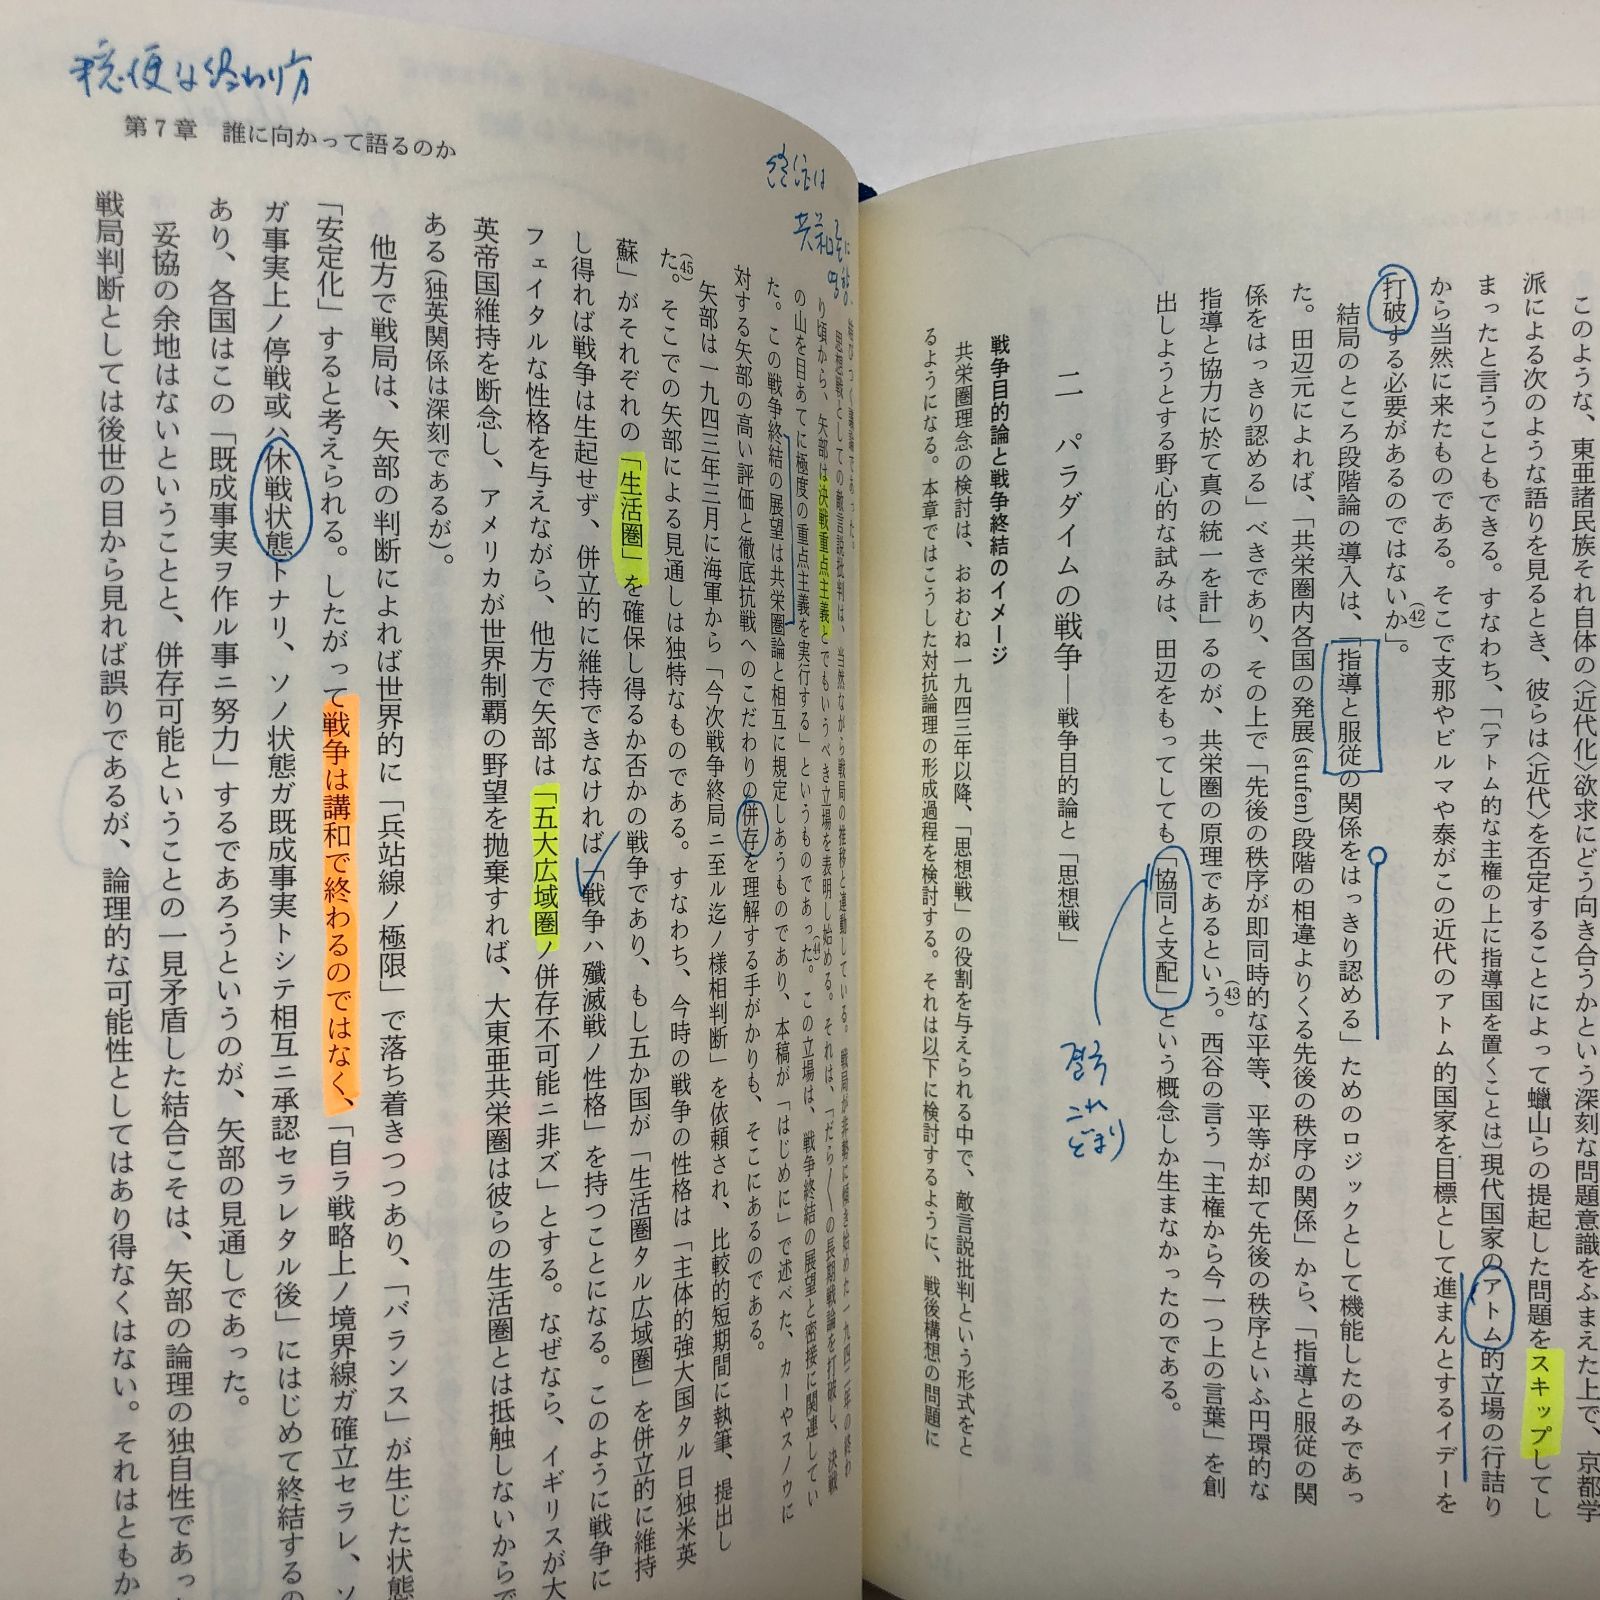 このような、東亜諸民族それ自体の〈近代化〉欲求にどう向き合うかという深刻な問題意識をふまえた上で、京都学
派による次のような語りを見るとき、彼らは〈近代〉を否定することによって蠟山らの提起した問題をスキップしてし
まったと言うこともできる。すなわち、「〔アトム的な主権の上に指導国を置くことは〕現代国家のアトム的立場の行詰り
から当然に来たものである。そこで支那やビルマや泰がこの近代のアトム的国家を目標として進まんとするイデーを
打破する必要があるのではないか」。(42)
結局のところ段階論の導入は、「指導と服従の関係をはっきり認める」ためのロジックとして機能したのみであっ
た。田辺元によれば、「共栄圏内各国の発展(stufen)段階の相違よりくる先後の秩序の関係」から、「指導と服従の関
係をはっきり認める」べきであり、その上で「先後の秩序が即同時的な平等、平等が却て先後の秩序といふ円環的な
指導と協力に於て真の統一を計」るのが、共栄圏の原理であるという。(43)西谷の言う「主権から今一つ上の言葉」を創
出しようとする野心的な試みは、田辺をもってしても「協同と支配」という概念しか生まなかったのである。
結局
これ
どまり
二 パラダイムの戦争―戦争目的論と「思想戦」
戦争目的論と戦争終結のイメージ
共栄圏理念の検討は、おおむね一九四三年以降、「思想戦」の役割を与えられる中で、敵言説批判という形式をと
るようになる。本章ではこうした対抗論理の形成過程を検討する。それは以下に検討するように、戦後構想の問題に
穏便な終わり方
第7章 誰に向かって語るのか
共栄圏に
結びつく議論であった。
思想戦としての敵言説批判は、当然ながら戦局の推移と連動している。戦局が非勢に傾き始めた一九四二年の終わ
り頃から、矢部は決戦重点主義とでもいうべき立場を表明し始める。それは、「だら〱の長期戦論を打破し、決戦
の山を目あてに極度の重点主義を実行する」というものであった。(44)この立場は、戦争終結の展望と密接に関連してい
た。この戦争終結の展望は共栄圏論と相互に規定しあうものであり、本稿が「はじめに」で述べた、カーやスノウに
対する矢部の高い評価と徹底抗戦へのこだわりの併存を理解する手がかりも、そこにあるのである。
矢部は一九四三年三月に海軍から「今次戦争終局ニ至ル迄ノ様相判断」を依頼され、比較的短期間に執筆、提出し
た。(45)そこでの矢部による見通しは独特なものである。すなわち、今時の戦争の性格は「主体的強大国タル日独米英
蘇」がそれぞれの「生活圏」を確保し得るか否かの戦争であり、もし五か国が「生活圏タル広域圏」を併立的に維持
し得れば戦争は生起せず、併立的に維持できなければ「戦争ハ殲滅戦ノ性格」を持つことになる。このように戦争に
フェイタルな性格を与えながら、他方で矢部は「五大広域圏ノ併存不可能ニ非ズ」とする。なぜなら、イギリスが大
英帝国維持を断念し、アメリカが世界制覇の野望を抛棄すれば、大東亜共栄圏は彼らの生活圏とは抵触しないからで
ある(独英関係は深刻であるが)。
他方で戦局は、矢部の判断によれば世界的に「兵站線ノ極限」で落ち着きつつあり、「バランス」が生じた状態
「安定化」すると考えられる。したがって戦争は講和で終わるのではなく、「自ラ戦略上ノ境界線ガ確立セラレ、ソ
ガ事実上ノ停戦或ハ休戦状態トナリ、ソノ状態ガ既成事実トシテ相互ニ承認セラレタル後」にはじめて終結するの
あり、各国はこの「既成事実ヲ作ル事ニ努力」するであろうというのが、矢部の見通しであった。
妥協の余地はないということと、併存可能ということの一見矛盾した結合こそは、矢部の論理の独自性であっ
戦局判断としては後世の目から見れば誤りであるが、論理的な可能性としてはあり得なくはない。それはともか